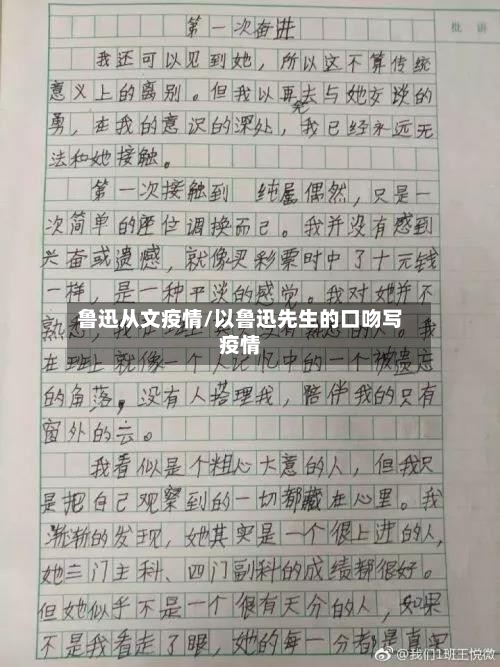 第一次奋进
批语
我还可以见到她，所以这不算传统
意义上的离别。但我以再去与她交谈的
失
勇，在我的意识的深处，我已经永远无
法和她接触。
第一次接触到 纯属偶然，只是一
次简单的座位调换而已。我并没有感到
兴奋或遗憾，就像买彩票时中了十元钱
一样，是一种平淡的感觉。我对她并不
鲁迅从文疫情/以鲁迅先生的口吻写
疫情
熟悉，
在班上就像一个人记忆中的一个被遗忘
的角落，没有人搭理我，陪伴我的只有
窗外的云。
我看似是个粗心大意的人，但我只
是把自己观察到的一切都藏在心里。我
渐渐的发现，她其实是一个很上进的人，
她三门主科、四门副科的成绩都很好。
但她似乎不是一个很有天分的人，如果
不是我看走了眼，她的每一分都是真实
@我们1班王悦微